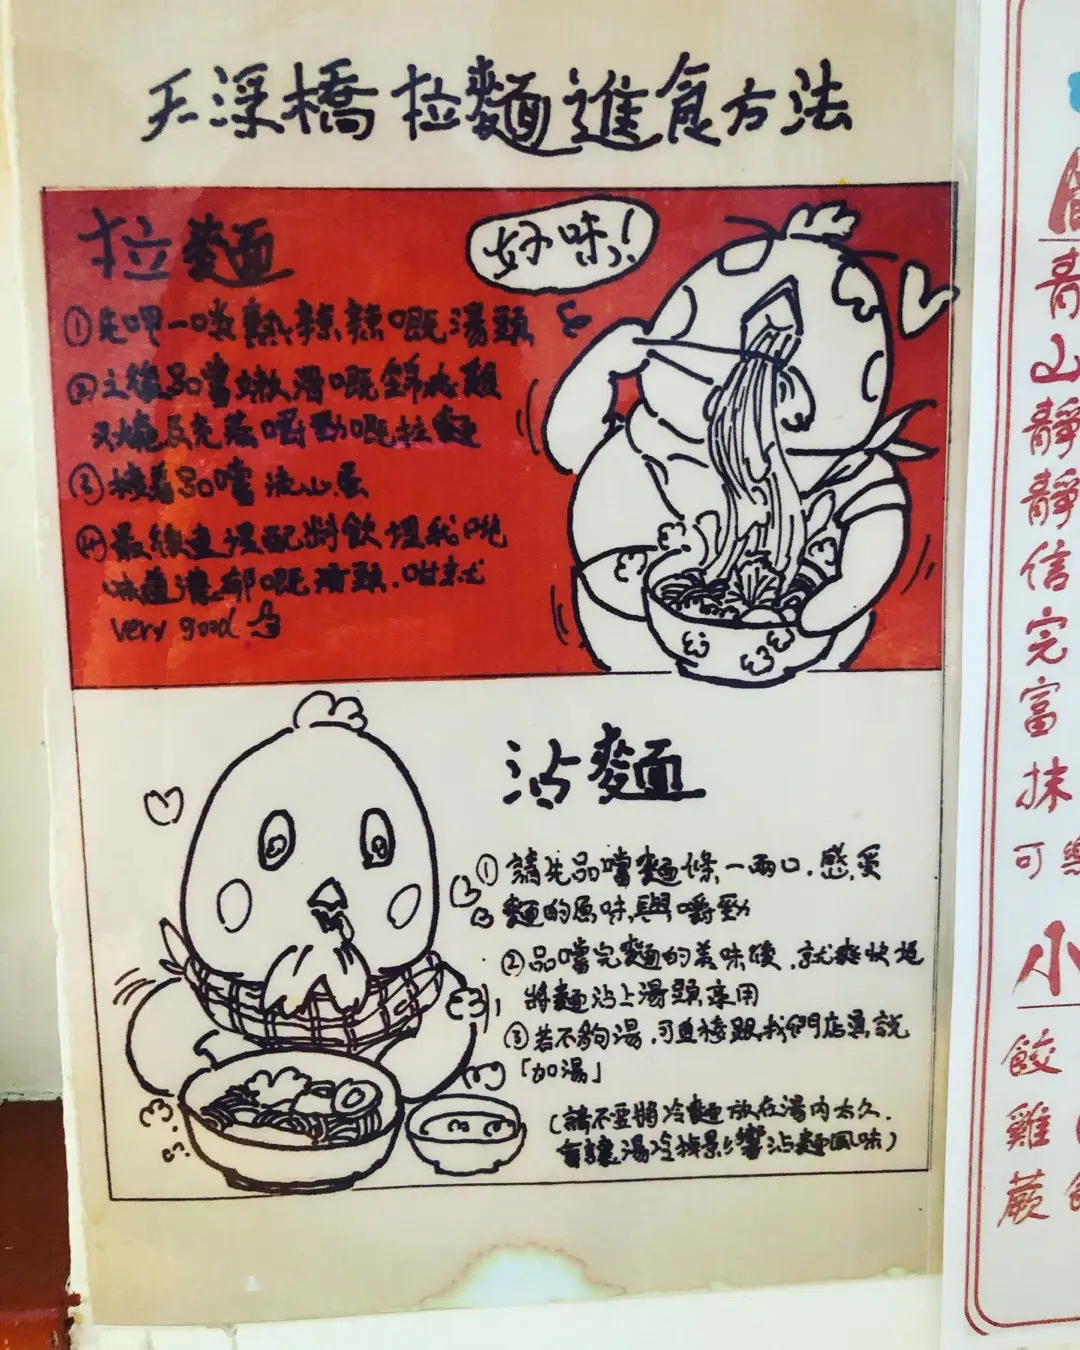 天浮橋 拉麵進食方法
拉麵
好味!
①先呷一啖熱辣辣嘅湯頭
②之後品嘗嫩滑嘅錦爽雞
叉燒及充滿嚼勁嘅拉麵
③接着品嚐流心蛋
④最後連湯配料飲埋我哋
味道濃郁嘅湯頭.咁就
very good
沾麵
①請先品嚐麵條一兩口.感受
麵的原味與嚼勁
②品嚐完麵的美味後.就爽快地
將麵沾上湯頭享用
③若不夠湯.可直接跟我們店員說
「加湯」
(請不要將冷麵放在湯內太久.
會讓湯冷掉影響沾麵風味)
青
山
靜
靜
信
完
富
抹
可樂
小
餃
雞
蕨